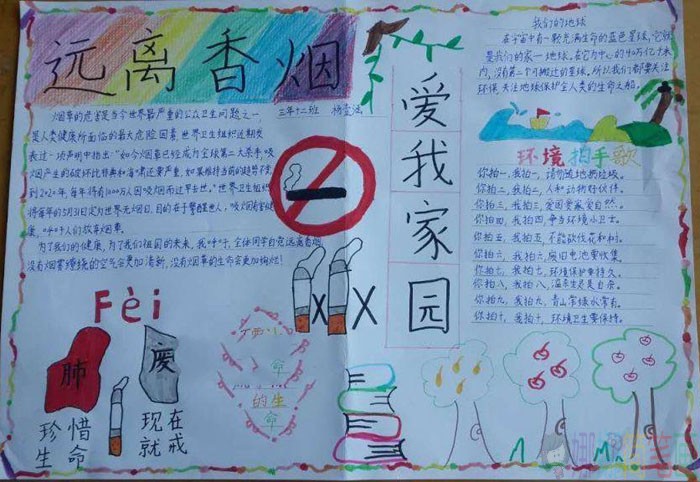 远离香烟
三年十二班 杨
烟草的危害是当今世界最严重的公众卫生问题之一,
是人类健康所面临的最大危险因素,世界卫生组织近期发
表过一项声明中指出:"如今烟草已经成为全球第二大杀手,吸
烟产生的破坏比非典和海啸还要严重,如果维持当前的趋势不变,
到2020年,每年将有1000万人因吸烟而过早去世。"世界卫生组织
将每年的5月31日定为世界无烟日,目的在于警醒世人,吸烟有害健
康,呼吁人们放弃烟草。
为了我们的健康,为了我们祖国的未来,我呼吁,全体同学自觉远离香烟
没有烟雾缭绕的空气会更加清新,没有烟草的生命会更加绚烂!
Fèi
肺
废
珍惜
生命
现在
就戒
XX
命
的生
命
爱我家园
我们的地球
在宇宙中有一颗充满生命的蓝色星球,它就
是我们的家—地球,在它方心的40万亿千米
内,没有第二个可搬迁的星球,所以我们都要关注
环保,关注地球保护全人类的生命之船。
环境拍手歌
你拍一,我拍一,请勿随地扔垃圾。
你拍二,我拍二,人和动物好伙伴。
你拍三,我拍三,爱国爱家爱自然。
你拍四,我拍四,争当环境小卫士。
你拍五,我拍五,不能砍伐花和树。
你拍六,我拍六,废旧电池要收集。
你拍七,我拍七,环境保护要持久。
你拍八,我拍八,
你拍九,我拍九,青山常绿水常有。
你拍十,我拍十,环境卫生要保持。